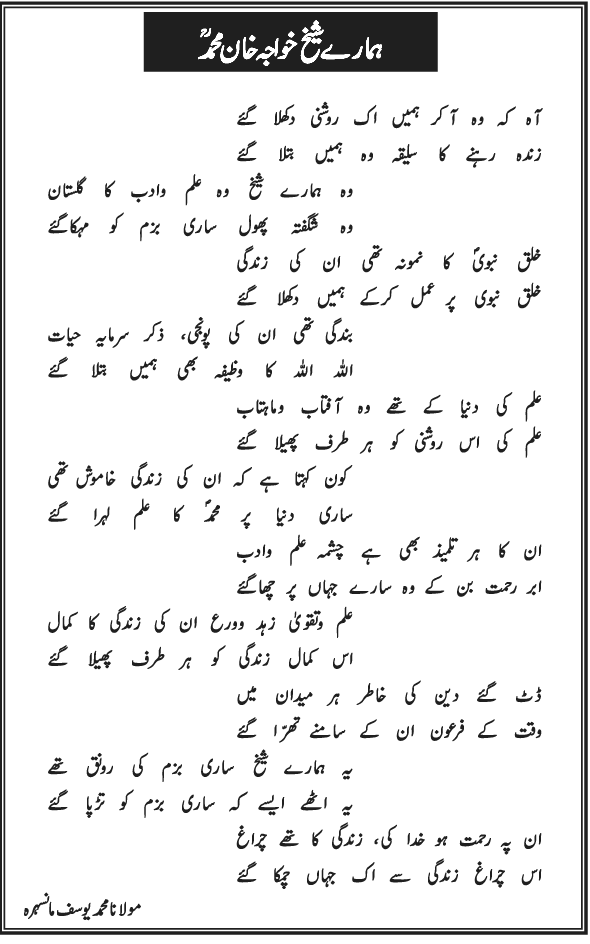 ہمارے شیخ خواجہ خان محمدؒ
آہ کہ وہ آکر ہمیں اک روشنی دکھلا گئے
زندہ رہنے کا سلیقہ وہ ہمیں بتلا گئے
وہ ہمارے شیخ وہ علم وادب کا گلستان
وہ شگفتہ پھول ساری بزم کو مہکاگئے
خلق نبویؐ کا نمونہ تھی ان کی زندگی
خلق نبوی پر عمل کرکے ہمیں دکھلا گئے
بندگی تھی ان کی پونجی، ذکر سرمایہ حیات
اللہ اللہ کا وظیفہ بھی ہمیں بتلا گئے
علم کی دنیا کے تھے وہ آفتاب وماہتاب
علم کی اس روشنی کو ہر طرف پھیلا گئے
کون کہتا ہے کہ ان کی زندگی خاموش تھی
ساری دنیا پر محمدؐ کا علم لہرا گئے
ان کا ہر تلمیذ بھی ہے چشمہ علم وادب
ابر رحمت بن کے وہ سارے جہاں پر چھاگئے
علم وتقویٰ زہد وورع ان کی زندگی کا کمال
اس کمال زندگی کو ہر طرف پھیلا گئے
ڈٹ گئے دین کی خاطر ہر میدان میں
وقت کے فرعون ان کے سامنے تھرّا گئے
یہ ہمارے شیخ ساری بزم کی رونق تھے
یہ اٹھے ایسے کہ ساری بزم کو تڑپا گئے
ان پہ رحمت ہو خدا کی، زندگی کا تھے چراغ
اس چراغ زندگی سے اک جہاں چمکا گئے
مولانا محمد یوسف مانسہرہ